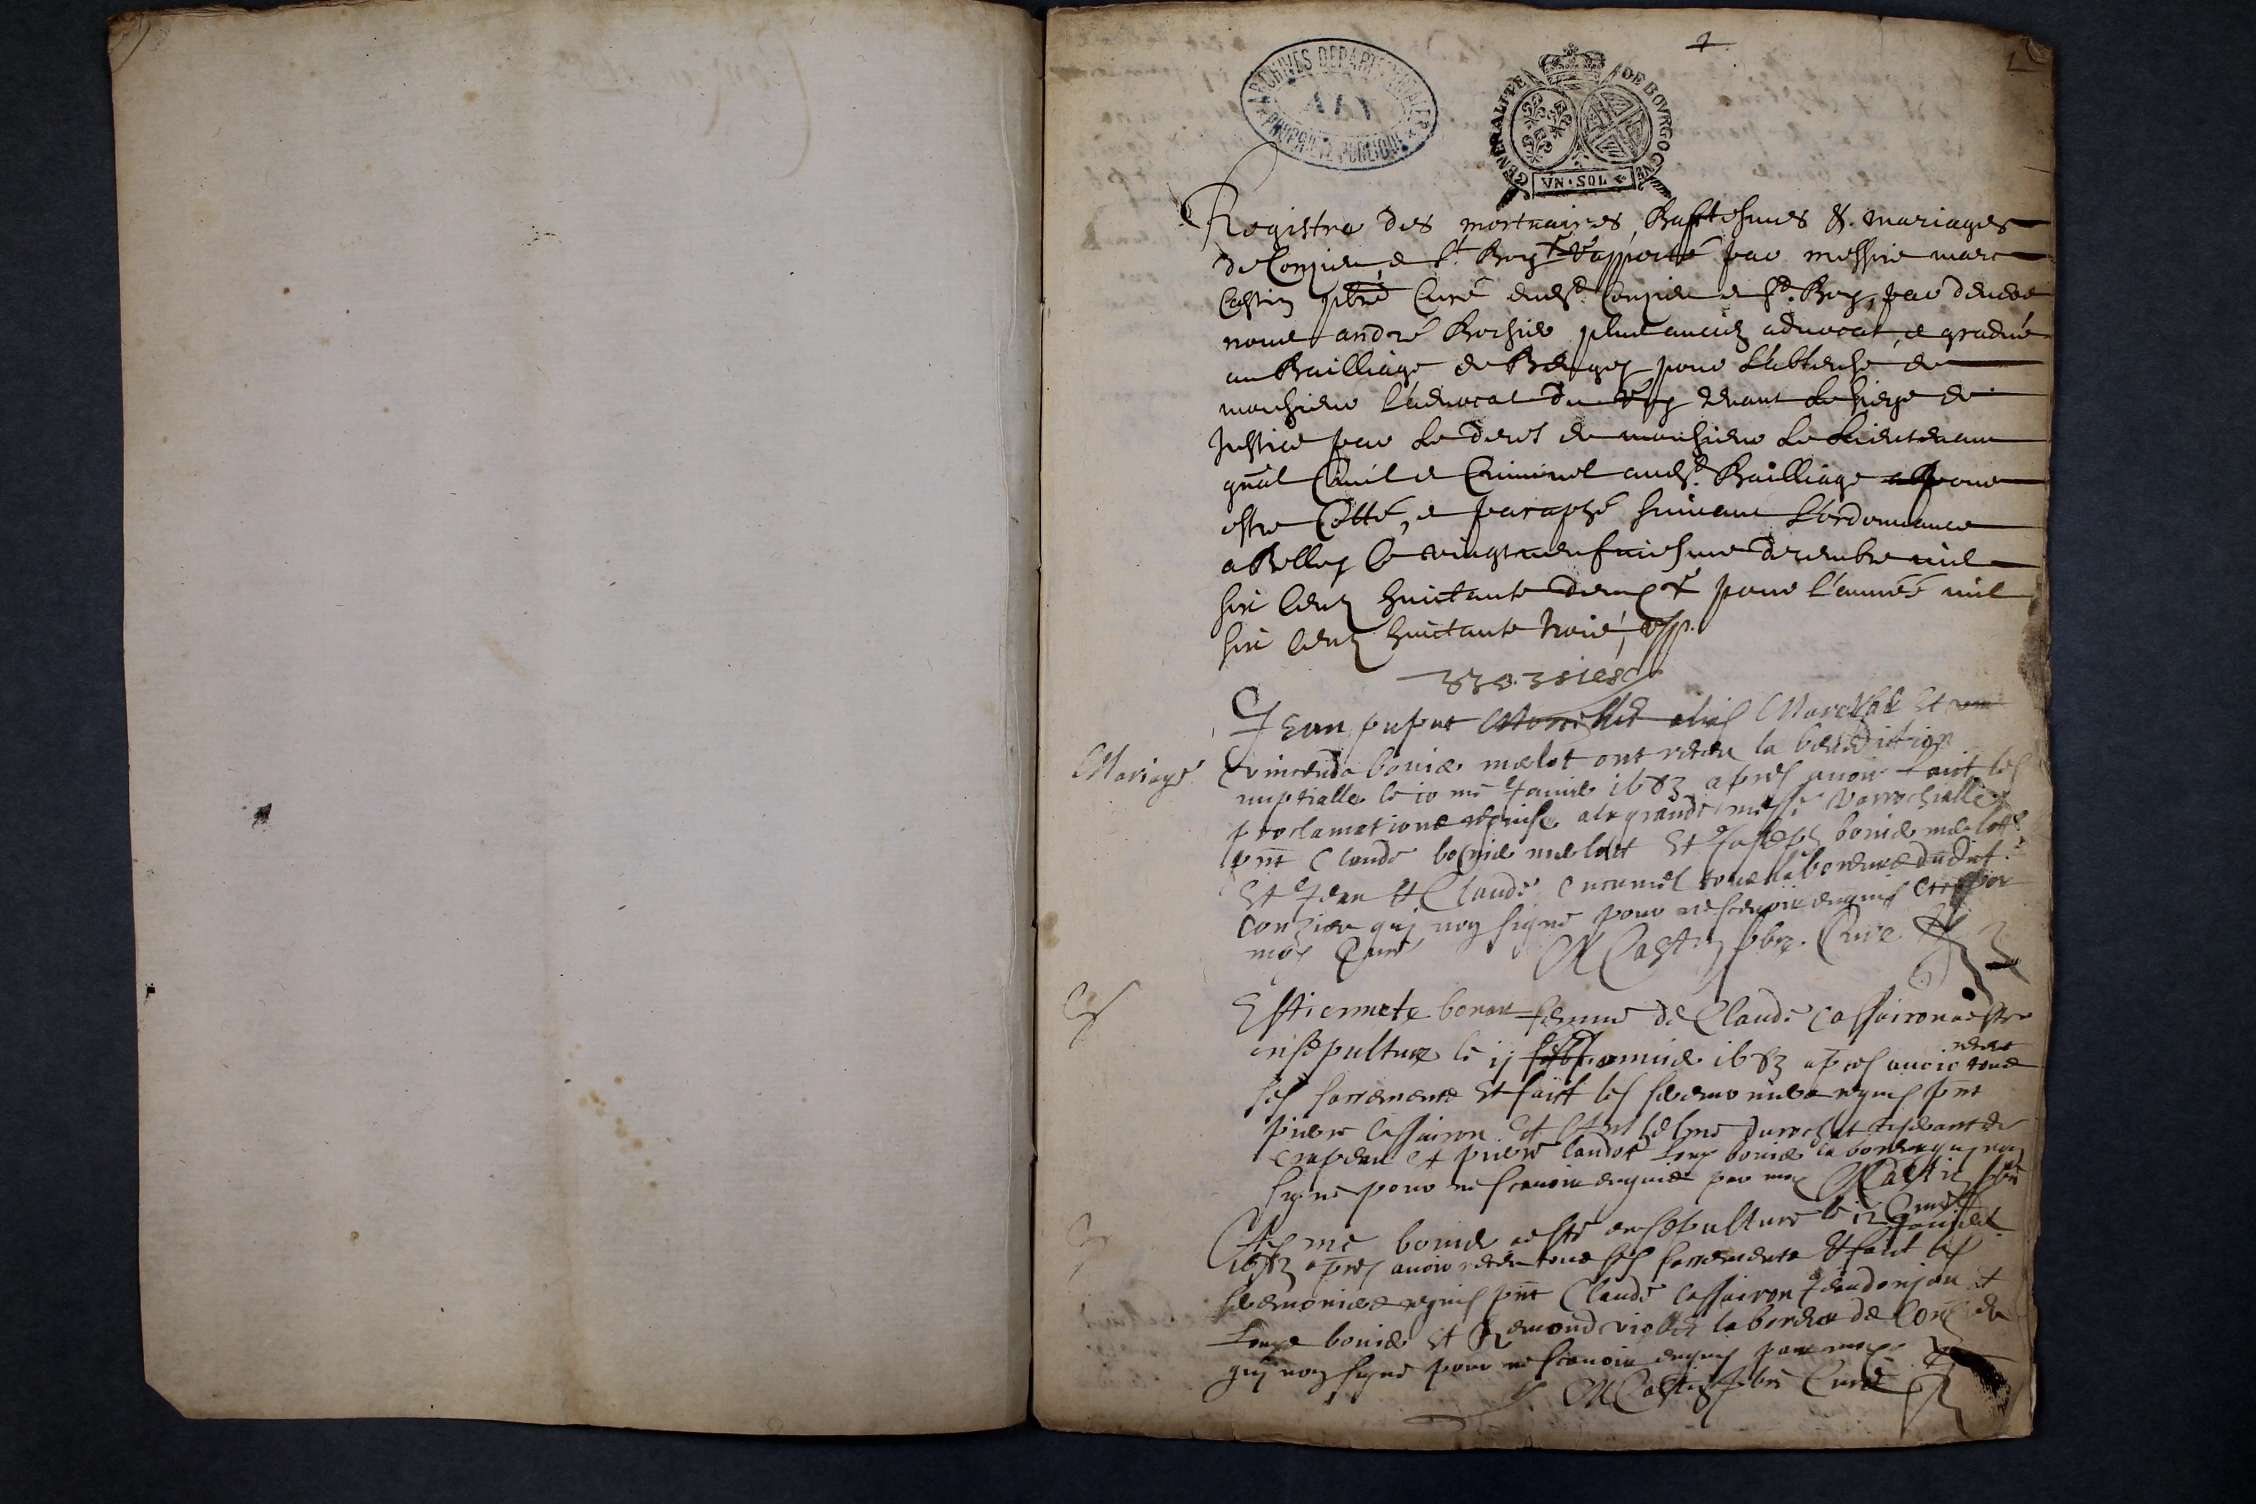 ARCHIVES DEPARTEMENTALES
AIN
PROPRIÉTÉ PUBLIQUE
GENERALITE DE BOVRGOGNE
VN·SOL
1
Registre des mortuaires, Baptesmes &. mariages
de Conzieu, e St. Boys rapporté par messire marc
Castin pbre Curé dudt. Conzieu e St. Boys, par devant
nous andré Brossier plus ancien advocat, e gradué
au Bailliage de Beugey pour l'abscence de
monsieur l'advocat du Roy tenant le siege de
Justice par le deces de monsieur le Lieutenant
gnal Civil e Criminel audt. Bailliage pour
estre Cotté, e paraphé suivant l'ordonnance
a Belley le vingtneufviesme decembre mil
six Cent huictante deux pour l'année mil
six Cent huictante trois,
Jean pupat alias et
Mariage
bonier melot ont receu la benediction
nuptialle le 10 me Janvie 1683 apres avoir faict les
proclamations requise a la grande messe Parrochialle
pnt Claude bonier melott et Joseph bonier melott
et Jean et Claude tous laboureurs dudict
Conzieu qui non signé pour ne scavoir enquis par
moy Curé M Castin pbre. Curé
Estiennete femme de Claude Cassairon a este
ensepulture le 11 Janvier 1683 apres avoir receu tous
ses sacrements et faict les seremonies requis pnt
pierre Cassairon et durochat
et pierre Landot Loup bonier laboureur qui non
signe pour ne scavoir enquis par moy M Castin pbre
Curé
bonier a esté ensepulture le 12 Janvier
1683 apres avoir receu tous ses sacrements et faict les
seremonies requis pnt Claude Cassairon et
Loup bonier et Remond laboureur de Conzieu
qui non signe pour ne scavoir enquis par moy
M Castin pbre Curé